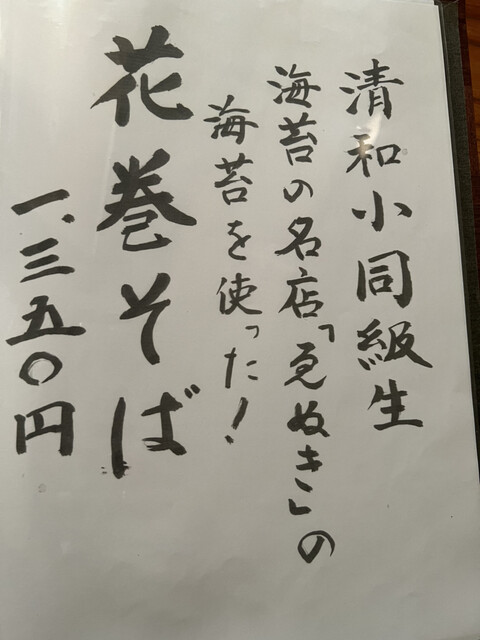 清和小同級生
海苔の名店「ゑぬき」の
海苔を使った!
花巻そば
一、三五〇円